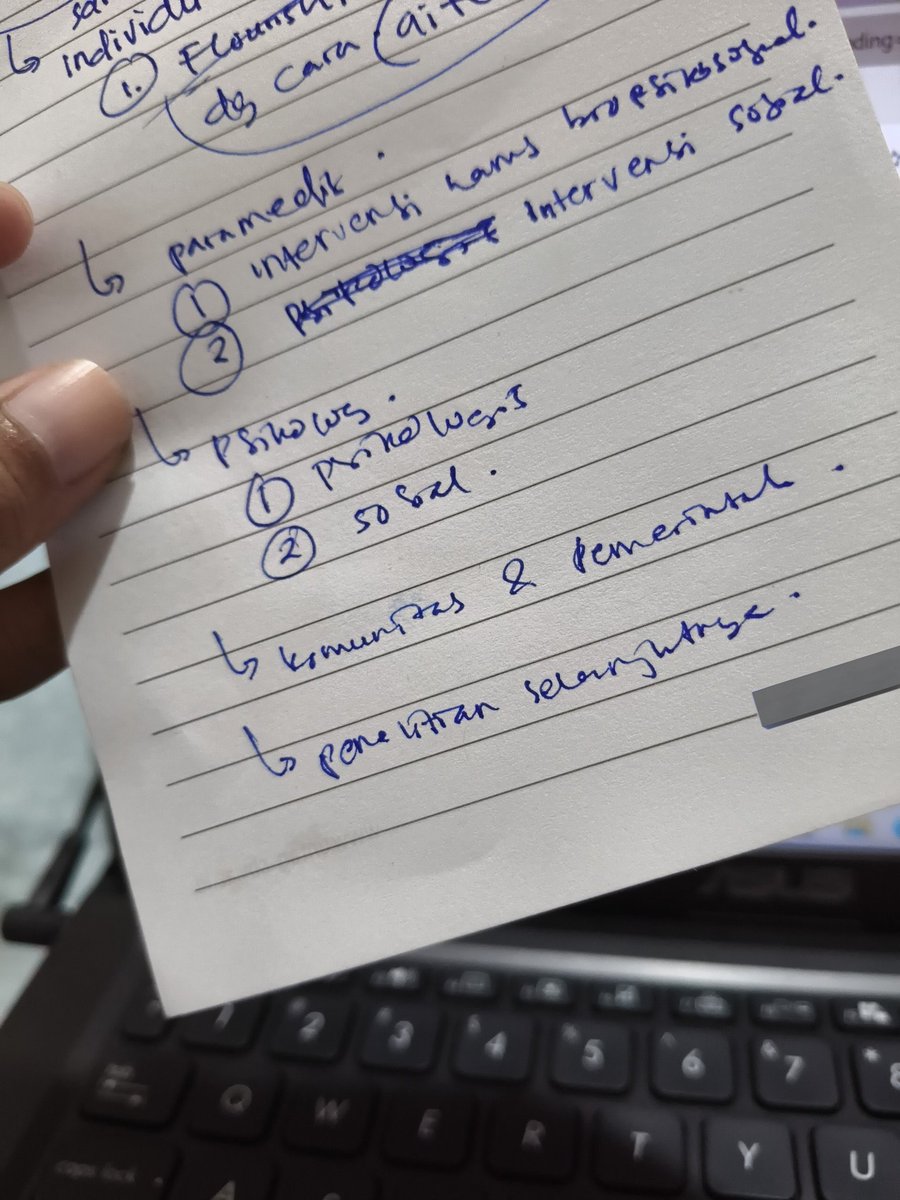 ↳ individu
① Flourish
dg cara (
↳ paramedik .
① intervensi harus biopsikososial.
② intervensi sosial.
↳ psikolog .
① psikologis
② sosial .
↳ komunitas & pemerintah .
↳ penelitian selanjutnya .
ASUS
1 2 3 4 5 6 7 8
Q W E R T Y U
caps lock